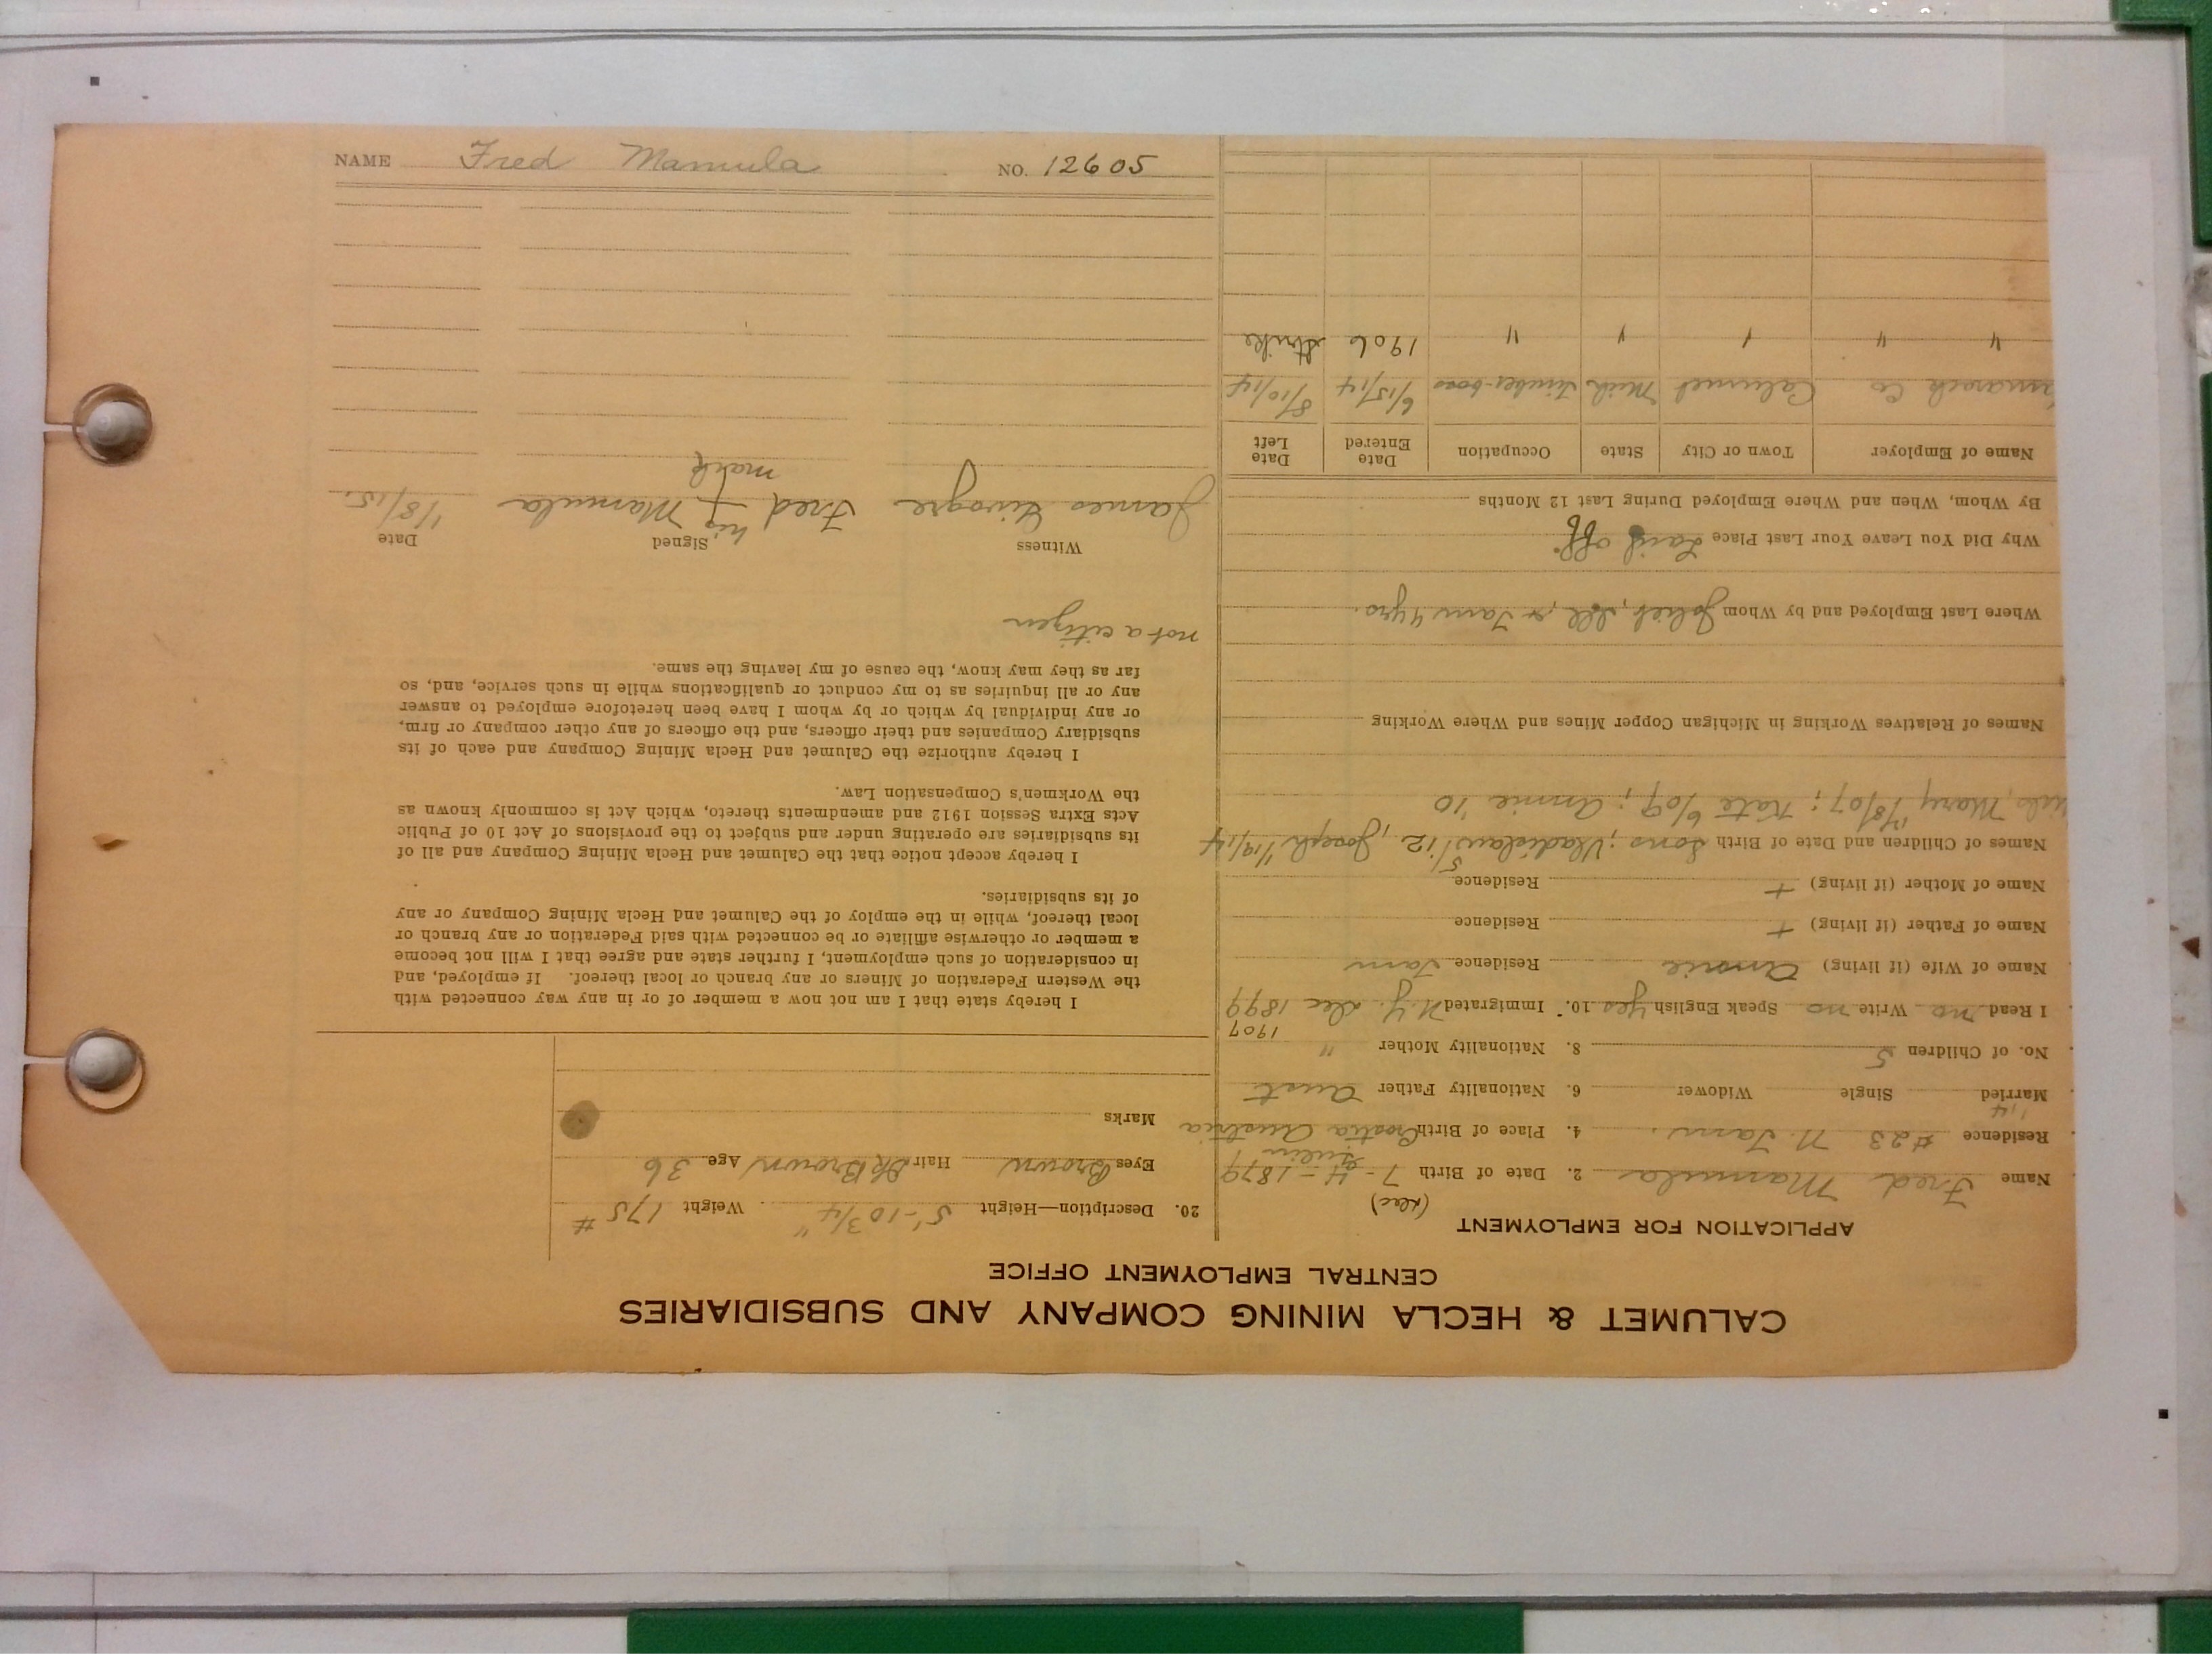 CALUMET & HECLA MINING COMPANY AND SUBSIDIARIES
CENTRAL EMPLOYMENT OFFICE
APPLICATION FOR EMPLOYMENT
(Dec)
Name Fred Mamula 2. Date of Birth 7 - 4 - 1879
Residence #23 N. Tam. 4. Place of Birth Croatia Austria
'14
Married Single Widower 6. Nationality Father Aust
No. of Children 5 8. Nationality Mother "
1907
I Read no Write no Speak English yes 10. Immigrated N.Y. Dec 1899
Name of Wife (if living) Annie Residence Tam
Name of Father (if living) + Residence
Name of Mother (if living) + Residence
Names of Children and Date of Birth Sons; Vladislaus 5/12, Joseph 1/19/14
Mary 17/8/07; Kate 6/09; Annie '10
Names of Relatives Working in Michigan Copper Mines and Where Working
Where Last Employed and by Whom Joliet, Ill, & Tam 4 yrs.
Why Did You Leave Your Last Place Laid off
By Whom, When and Where Employed During Last 12 Months
Name of Employer Town or City State Occupation Date Entered Date Left
Co Calumet Mich Timber-boss 6/15/14 8/10/14
" " " " " 1906 Strike
20. Description—Height 5'-10 3/4" Weight 175 #
Eyes Brown Hair Dk Brown Age 36
Marks
I hereby state that I am not now a member of or in any way connected with
the Western Federation of Miners or any branch or local thereof. If employed, and
in consideration of such employment, I further state and agree that I will not become
a member or otherwise affiliate or be connected with said Federation or any branch or
local thereof, while in the employ of the Calumet and Hecla Mining Company or any
of its subsidiaries.
I hereby accept notice that the Calumet and Hecla Mining Company and all of
its subsidiaries are operating under and subject to the provisions of Act 10 of Public
Acts Extra Session 1912 and amendments thereto, which Act is commonly known as
the Workmen's Compensation Law.
I hereby authorize the Calumet and Hecla Mining Company and each of its
subsidiary Companies and their officers, and the officers of any other company or firm,
or any individual by which or by whom I have been heretofore employed to answer
any or all inquiries as to my conduct or qualifications while in such service, and, so
far as they may know, the cause of my leaving the same.
not a citizen
Witness Signed Date
his
James Fred + Mamula 1/8/15.
mark
NAME Fred Mamula NO. 12605